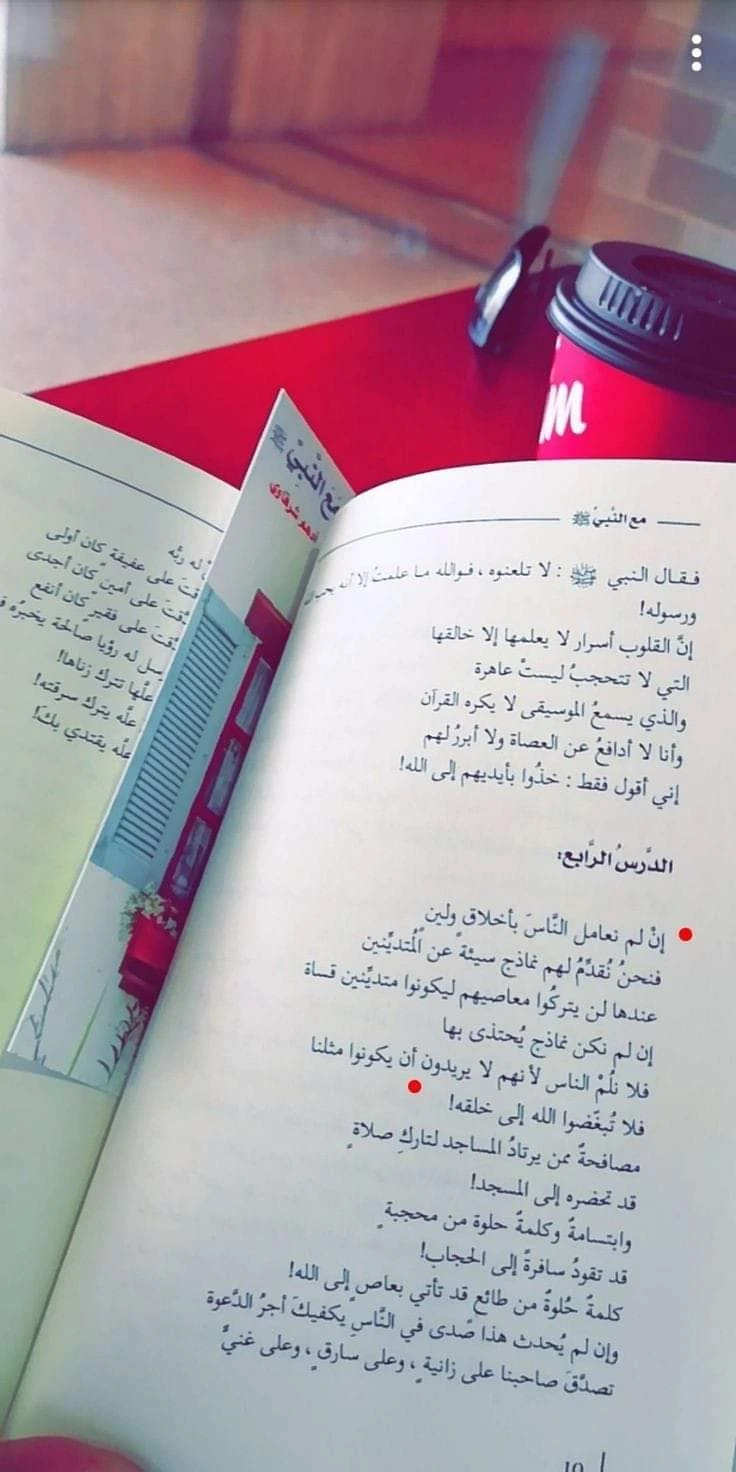 مع النَّبيّ ﷺ
فقال النبي ﷺ : لا تلعنوه ، فوالله ما علمتُ إلا أنه يحب الله
ورسوله!
إنَّ القلوب أسرار لا يعلمها إلا خالقها
التي لا تتحجبُ ليستْ عاهرة
والذي يسمعُ الموسيقى لا يكره القرآن
وأنا لا أدافعُ عن العصاة ولا أبررُ لهم
إني أقول فقط : خذُوا بأيديهم إلى الله!
الدَّرسُ الرَّابع:
إنْ لم نعامل النَّاسَ بأخلاق ولين
فنحنُ نُقدِّمُ لهم نماذج سيئةً عن المُتديِّنين
عندها لن يتركُوا معاصيهم ليكونوا متديِّنين قساة
إن لم نكن نماذج يُحتذى بها
فلا نلُمْ الناس لأنهم لا يريدون أن يكونوا مثلنا
فلا تُبغّضوا الله إلى خلقه!
مصافحةٌ ممن يرتادُ المساجد لتاركِ صلاةٍ
قد تحضره إلى المسجد!
وابتسامةٌ وكلمةٌ حلوة من محجبةٍ
قد تقودُ سافرةً إلى الحجاب!
كلمةٌ حُلوةٌ من طائع قد تأتي بعاصٍ إلى الله!
وإن لم يُحدث هذا صدى في النَّاسِ يكفيكَ أجرُ الدَّعوة
تصدَّقَ صاحبنا على زانيةٍ ، وعلى سارقٍ ، وعلى غنيٍّ
مَعَ النَّبيّ ﷺ
أدهم شرقاوي
له ربُّه
على عفيفة كان أولى
على أمينٍ كان أجدى
على فقيرٍ كان أنفع
له رؤيا صالحة يخبرُه
علَّها تترك زناها!
علَّه يترك سرقته!
علَّه يقتدي بكَ!